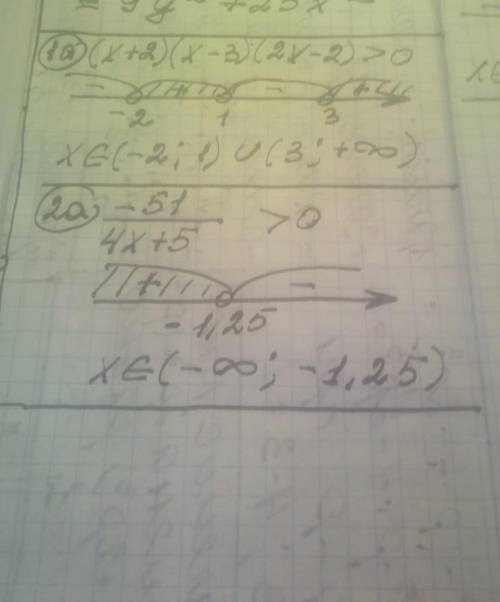 = 9y² + 25x
1a) (x+2)(x-3)(2x-2)>0
- + - +
-2 1 3
x∈(-2; 1)∪(3; +∞)
2a) -51/4x+5 >0
+ -
-1,25
x∈(-∞; -1,25)